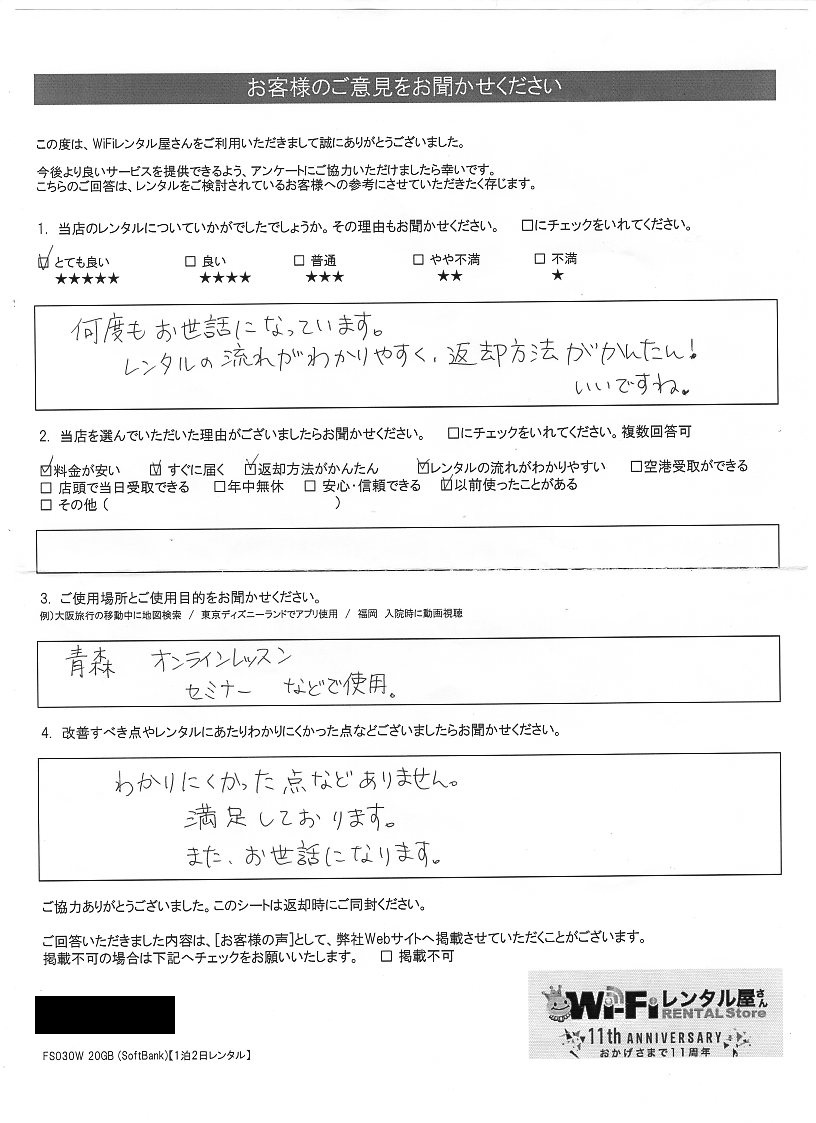 お客様のご意見をお聞かせください
この度は、WiFiレンタル屋さんをご利用いただきまして誠にありがとうございました。
今後より良いサービスを提供できるよう、アンケートにご協力いただけましたら幸いです。
こちらのご回答は、レンタルをご検討されているお客様への参考にさせていただきたく存じます。
1. 当店のレンタルについていかがでしたでしょうか。その理由もお聞かせください。 □にチェックをいれてください。
☑ とても良い □ 良い □ 普通 □ やや不満 □ 不満
★★★★★ ★★★★ ★★★ ★★ ★
何度もお世話になっています。
レンタルの流れがわかりやすく、返却方法がかんたん！
いいですね。
2. 当店を選んでいただいた理由がございましたらお聞かせください。 □にチェックをいれてください。複数回答可
☑料金が安い ☑ すぐに届く ☑返却方法がかんたん ☑レンタルの流れがわかりやすい □空港受取ができる
□ 店頭で当日受取できる □年中無休 □ 安心・信頼できる ☑以前使ったことがある
□ その他（ ）
3. ご使用場所とご使用目的をお聞かせください。
例）大阪旅行の移動中に地図検索 / 東京ディズニーランドでアプリ使用 / 福岡 入院時に動画視聴
青森 オンラインレッスン
セミナー などで使用。
4. 改善すべき点やレンタルにあたりわかりにくかった点などございましたらお聞かせください。
わかりにくかった点などありません。
満足しております。
また、お世話になります。
ご協力ありがとうございました。このシートは返却時にご同封ください。
ご回答いただきました内容は、[お客様の声]として、弊社Webサイトへ掲載させていただくことがございます。
掲載不可の場合は下記へチェックをお願いいたします。 □ 掲載不可
Wi-Fiレンタル屋さん
RENTAL Store
11th ANNIVERSARY
おかげさまで11周年
FS030W 20GB (SoftBank)【1泊2日レンタル】